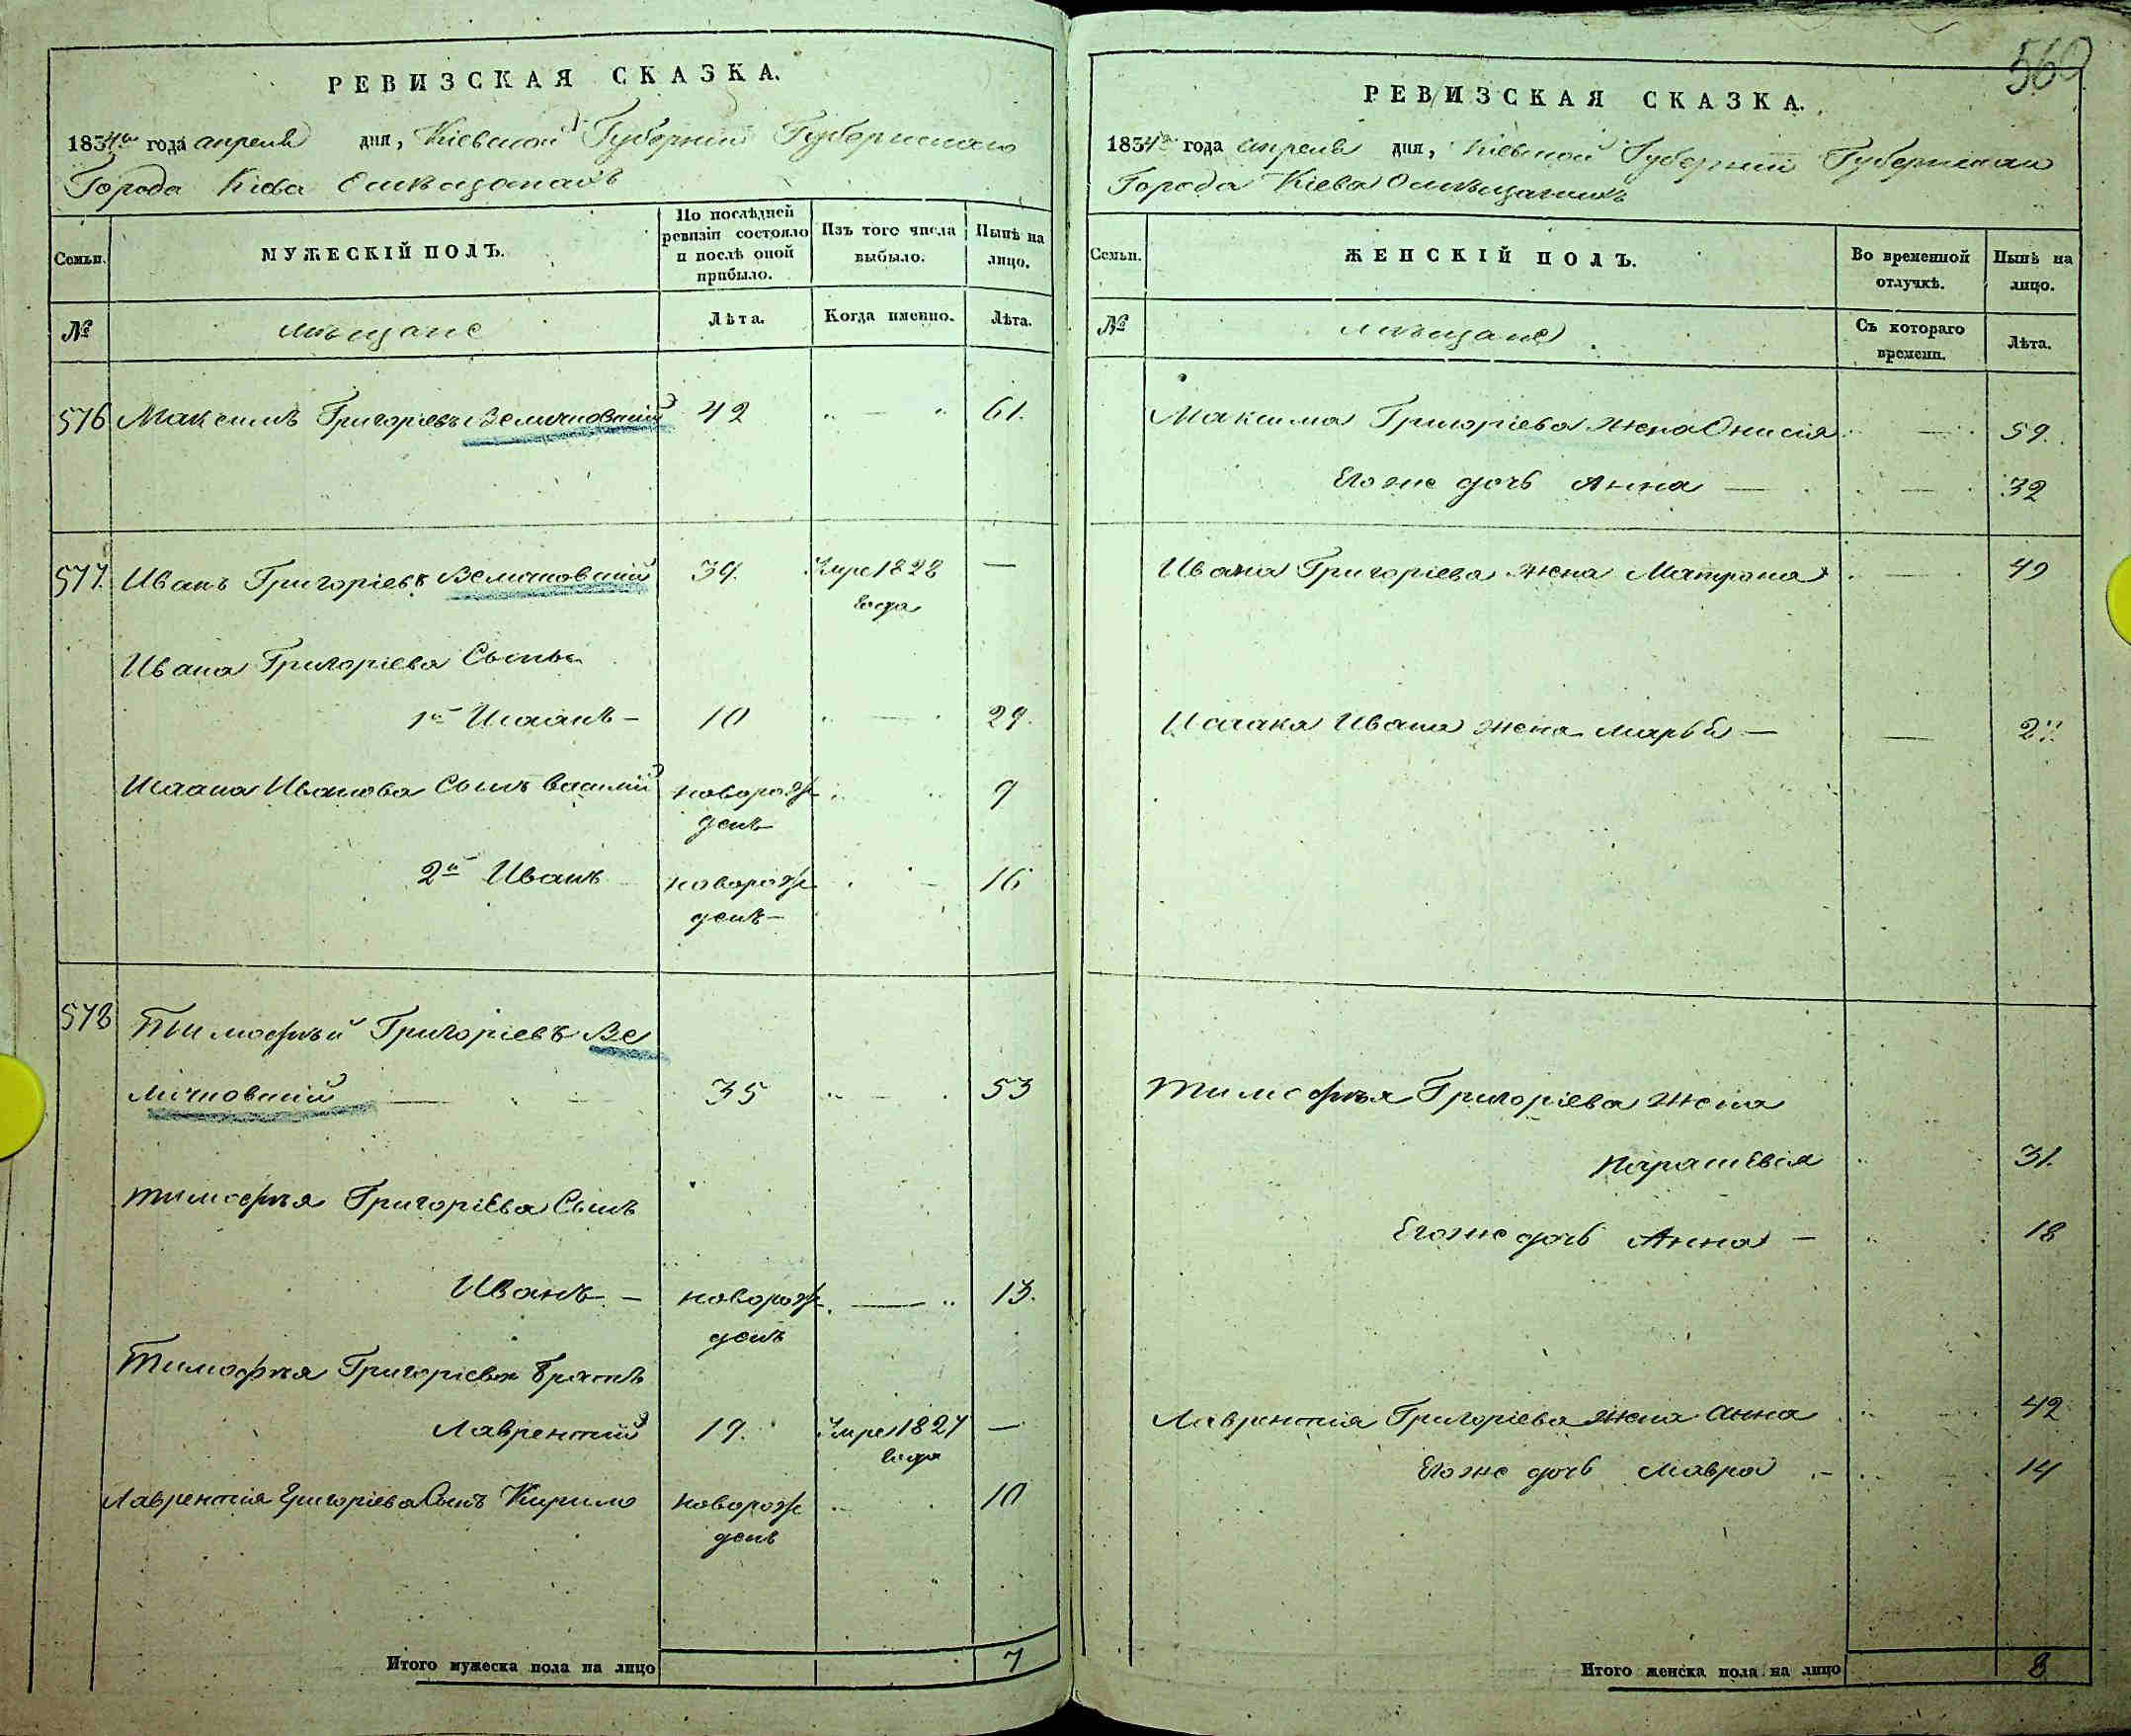 РЕВИЗСКАЯ СКАЗКА.
1834го года апреля дня, Кіевской Губерніи Губернскаго
Города Кіева о мѣщанахъ
Семьи.
МУЖЕСКІЙ ПОЛЪ.
По послѣдней ревизіи состояло и послѣ оной прибыло.
Изъ того числа выбыло.
Нынѣ на лицо.
№
мѣщане
Лѣта.
Когда именно.
Лѣта.
576 Максимъ Григорьевъ Величковскій 42 61.
577. Иванъ Григоріевъ Величковскій 39. Умре 1828 —
года
Ивана Григоріева Сынъ
1й Исаакъ — 10 29.
Исаака Иванова Сынъ Василій новорож 9
денъ
2й Иванъ новорож 16
денъ —
578 Тимофѣй Григоріевъ Ве
личковскій — 35 53
Тимофѣя Григоріева Сынъ
Иванъ — новорож — 13.
денъ
Тимофѣя Григоріева братъ
Лаврентій 19. Умре 1827 —
года
Лаврентія Григоріева Сынъ Кирило новорож 10
денъ
Итого мужеска пола на лицо 7
560
РЕВИЗСКАЯ СКАЗКА.
1834го года апреля дня, Кіевской Губерніи Губернскаго
Города Кіева о мѣщанахъ
Семьи.
ЖЕНСКІЙ ПОЛЪ.
Во временной отлучкѣ.
Нынѣ на лицо.
№
мѣщане
Съ котораго времени.
Лѣта.
Максима Григоріева жена Онисія — 59.
Его же дочь Анна — — 32
Ивана Григоріева жена Матрона — 49
Исаака Ивана жена Марья — — 27.
Тимофѣя Григоріева жена
Параскевія 31.
Его же дочь Анна — 18
Лаврентія Григоріева жена Анна 42
Его же дочь Мавра 14
Итого женска пола на лицо 8